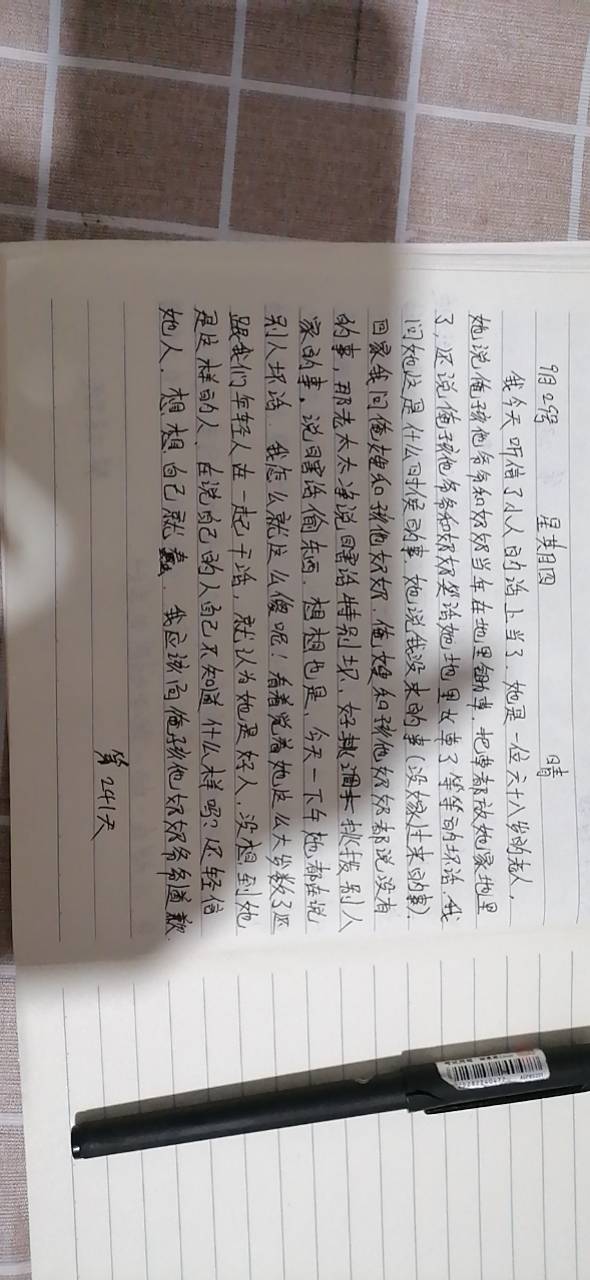 9月29号 星期四 晴
我今天听信了小人的话上当了、她是一位六十八岁的老人，
她说俺孩他爷爷和奶奶当年在地里锄草，把草都放她家地里
了，还说俺孩他爷爷和奶奶笑话她地里长草了等等的坏话、我
问她这是什么时侯的事，她说我没来的事（没嫁过来的事）、
回家我问俺嫂和孩他奶奶，俺嫂和孩他奶奶都说没有
的事，那老太太净说瞎话特别坏，好挑拨别人
家的事，说瞎话偷东西，想想也是，今天一下午她都在说
别人坏话，我怎么就这么傻呢！看着觉着她这么大岁数了还
跟我们年轻人在一起干活，就认为她是好人，没想到她
是这样的人、在说自己的人自己不知道什么样吗？还轻信
她人，想想自己就蠢，我应该向俺孩他奶奶爷爷道歉、
第241天